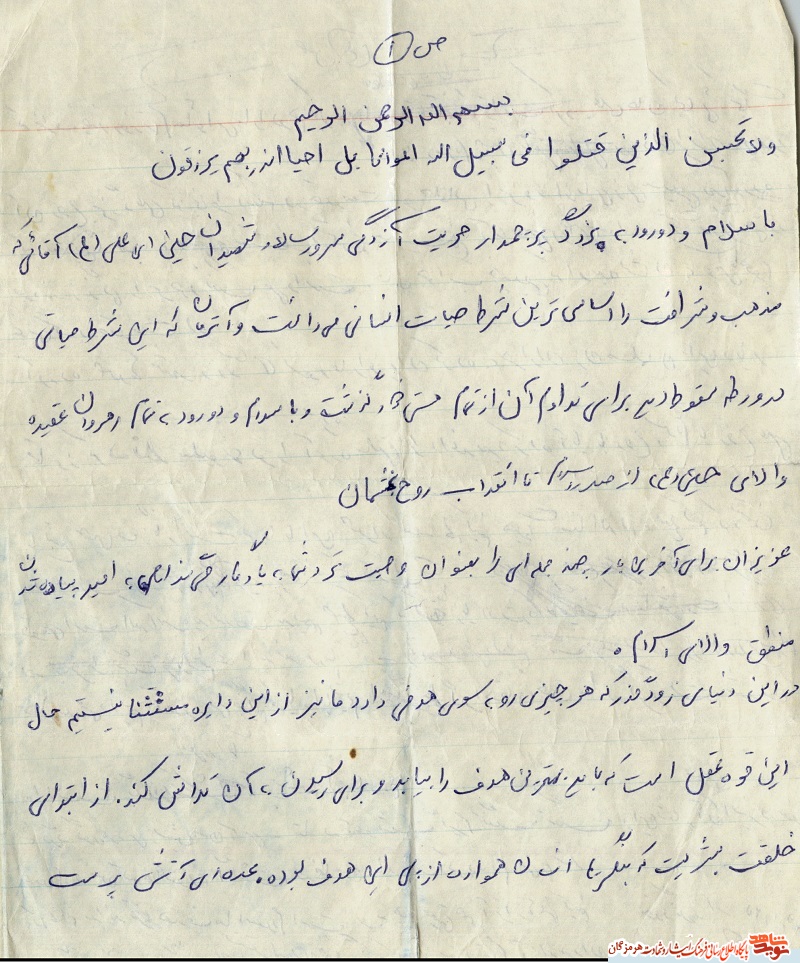 ص ۱
بسم الله الرحمن الرحیم
ولا تحسبن الذین قتلوا فی سبیل الله امواتا بل احیا اندربهم یرزقون
با سلام و درود به بزرگ پرچمدار حریت آزادگی سرور سالار شهیدان حسین ابن علی (ع) آقائی که
مذهب و شرافت را اساسی ترین شرط حیات انسانی می دانست و آنزمان که این شرط حیاتی
در ورطه سقوط دید برای تداوم آن از تمام هستی گذشت و با سلام و درود به تمام رهروان عقیده
والای حسین (ع) از صدر اسلام تا انقلاب روح بخشمان
عزیزان برای آخرین بار چند جمله ای را بعنوان وصیت نزد شما به یادگار می به امید پیاده شدن
منطق والای اسلام .
در این دنیای زودگذر که هر چیزی رو به سوی هدفی دارد ما نیز از این دایره مستثنا نیستیم حال
این قوه عقل است که باید بهترین هدف را بیابد و برای رسیدن به آن تلاش کند . از ابتدای
خلقت بشریت که بنگریم انسان همواره از پی این هدف بوده . عده ای آتش پرست
شاهد نوید
پایگاه اطلاع رسانی فرهنگ ایثار و شهادت هرمزگان